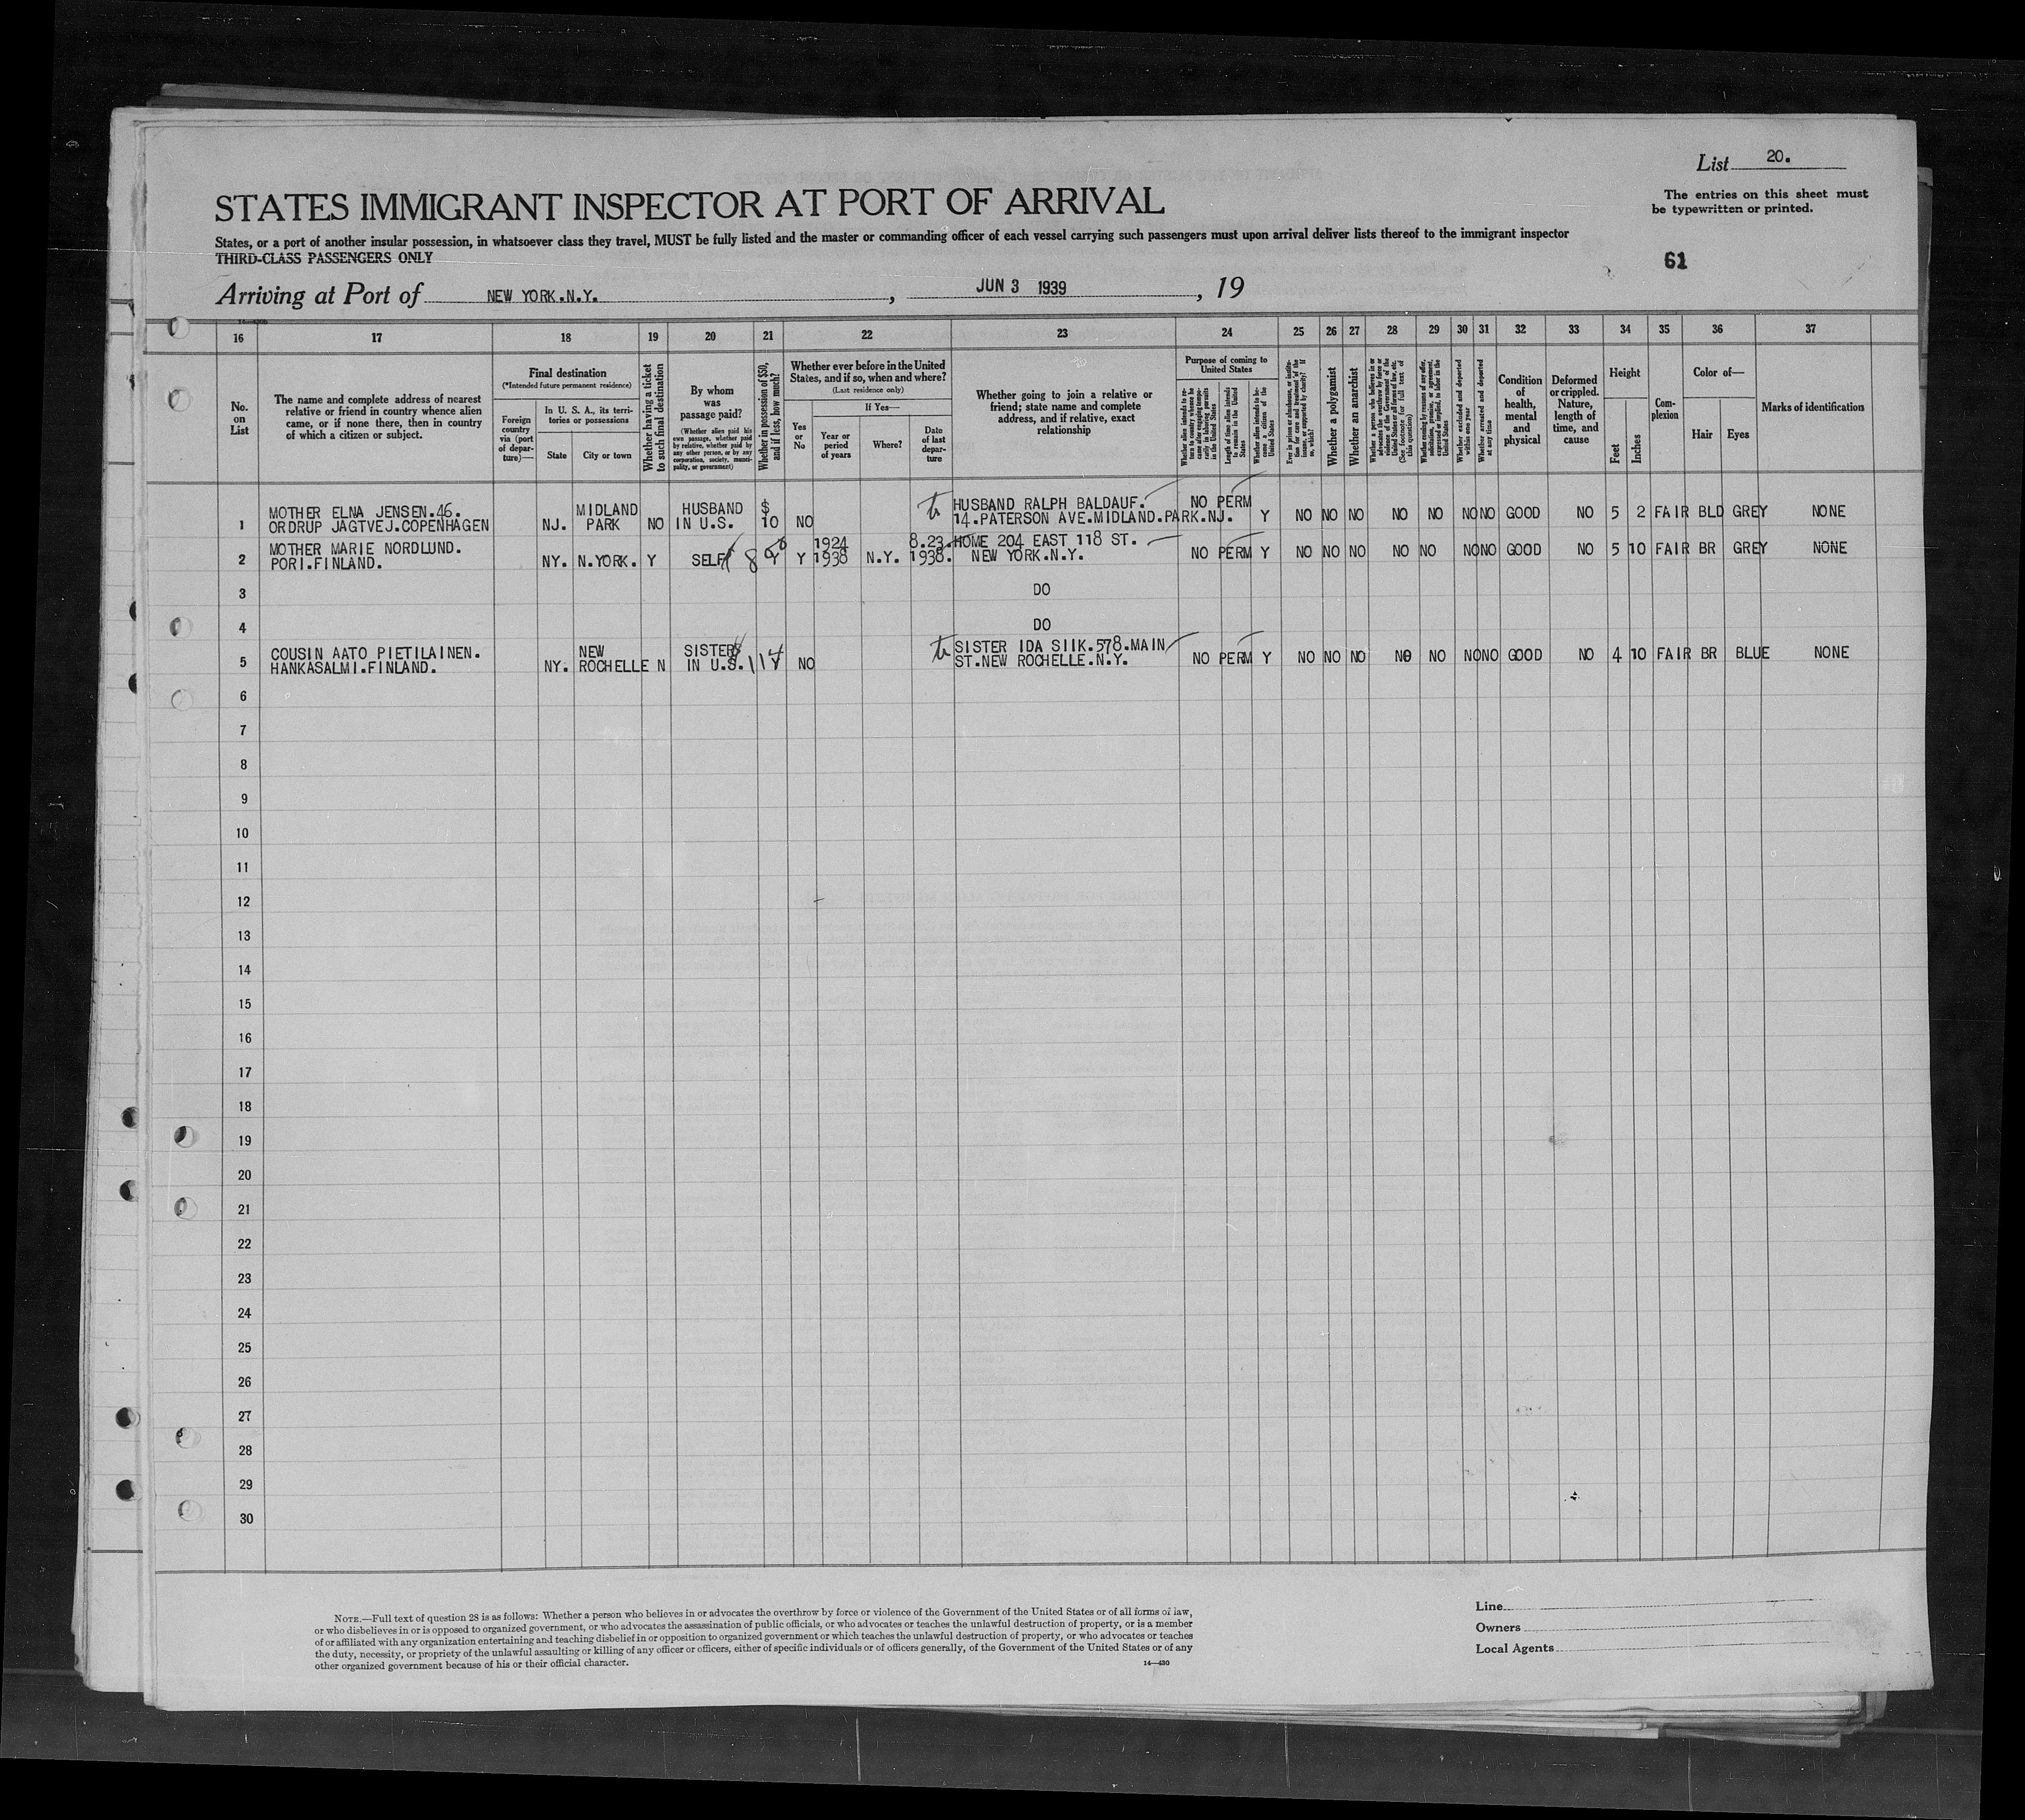 List 20.
The entries on this sheet must
be typewritten or printed.
STATES IMMIGRANT INSPECTOR AT PORT OF ARRIVAL
States, or a port of another insular possession, in whatsoever class they travel, MUST be fully listed and the master or commanding officer of each vessel carrying such passengers must upon arrival deliver lists thereof to the immigrant inspector
THIRD-CLASS PASSENGERS ONLY
61
Arriving at Port of NEW YORK.N.Y. , JUN 3 1939 , 19
16 17 18 19 20 21 22 23 24 25 26 27 28 29 30 31 32 33 34 35 36 37
No. on List
The name and complete address of nearest
relative or friend in country whence alien
came, or if none there, then in country
of which a citizen or subject.
Final destination
(*Intended future permanent residence)
Foreign country via (port of departure)—
In U. S. A., its territories or possessions
State
City or town
Whether having a ticket to such final destination
By whom was passage paid?
(Whether alien paid his own passage, whether paid by relative, whether paid by any other person, or by any corporation, society, municipality, or government)
Whether in possession of $50, and if less, how much?
Whether ever before in the United
States, and if so, when and where?
(Last residence only)
Yes or No
If Yes—
Year or period of years
Where?
Date of last departure
Whether going to join a relative or
friend; state name and complete
address, and if relative, exact
relationship
Purpose of coming to United States
Whether alien intends to return to country whence he came after engaging temporarily in laboring pursuits in the United States
Length of time alien intends to remain in the United States
Whether alien intends to become a citizen of the United States
Ever in prison or almshouse, or institution for care and treatment of the insane, or supported by charity? If so, which?
Whether a polygamist
Whether an anarchist
Whether a person who believes in or advocates the overthrow by force or violence of the Government of the United States or all forms of law, etc. (See footnote for full text of this question)
Whether coming by reasons of any offer, solicitation, promise, or agreement, expressed or implied, to labor in the United States
Whether excluded and deported within one year
Whether arrested and deported at any time
Condition of health, mental and physical
Deformed or crippled. Nature, length of time, and cause
Height
Feet
Inches
Complexion
Color of—
Hair
Eyes
Marks of identification
1 MOTHER ELNA JENSEN.46. ORDRUP JAGTVEJ.COPENHAGEN NJ. MIDLAND PARK NO HUSBAND IN U.S. $ 10 NO HUSBAND RALPH BALDAUF. 14.PATERSON AVE.MIDLAND.PARK.NJ. NO PERM Y NO NO NO NO NO NO NO GOOD NO 5 2 FAIR BLD GREY NONE
2 MOTHER MARIE NORDLUND. PORI.FINLAND. NY. N.YORK. Y SELF Y Y 1924 1938 N.Y. 8.23. 1938. HOME 204 EAST 118 ST. NEW YORK.N.Y. NO PERM Y NO NO NO NO NO NO NO GOOD NO 5 10 FAIR BR GREY NONE
3 DO
4 DO
5 COUSIN AATO PIETILAINEN. HANKASALMI.FINLAND. NY. NEW ROCHELLE N SISTER IN U.S. Y NO SISTER IDA SIIK.578.MAIN ST.NEW ROCHELLE.N.Y. NO PERM Y NO NO NO NO NO NO NO GOOD NO 4 10 FAIR BR BLUE NONE
6
7
8
9
10
11
12
13
14
15
16
17
18
19
20
21
22
23
24
25
26
27
28
29
30
NOTE.—Full text of question 28 is as follows: Whether a person who believes in or advocates the overthrow by force or violence of the Government of the United States or of all forms of law,
or who disbelieves in or is opposed to organized government, or who advocates the assassination of public officials, or who advocates or teaches the unlawful destruction of property, or is a member
of or affiliated with any organization entertaining and teaching disbelief in or opposition to organized government or which teaches the unlawful destruction of property, or who advocates or teaches
the duty, necessity, or propriety of the unlawful assaulting or killing of any officer or officers, either of specific individuals or of officers generally, of the Government of the United States or of any
other organized government because of his or their official character.
14—430
Line
Owners
Local Agents